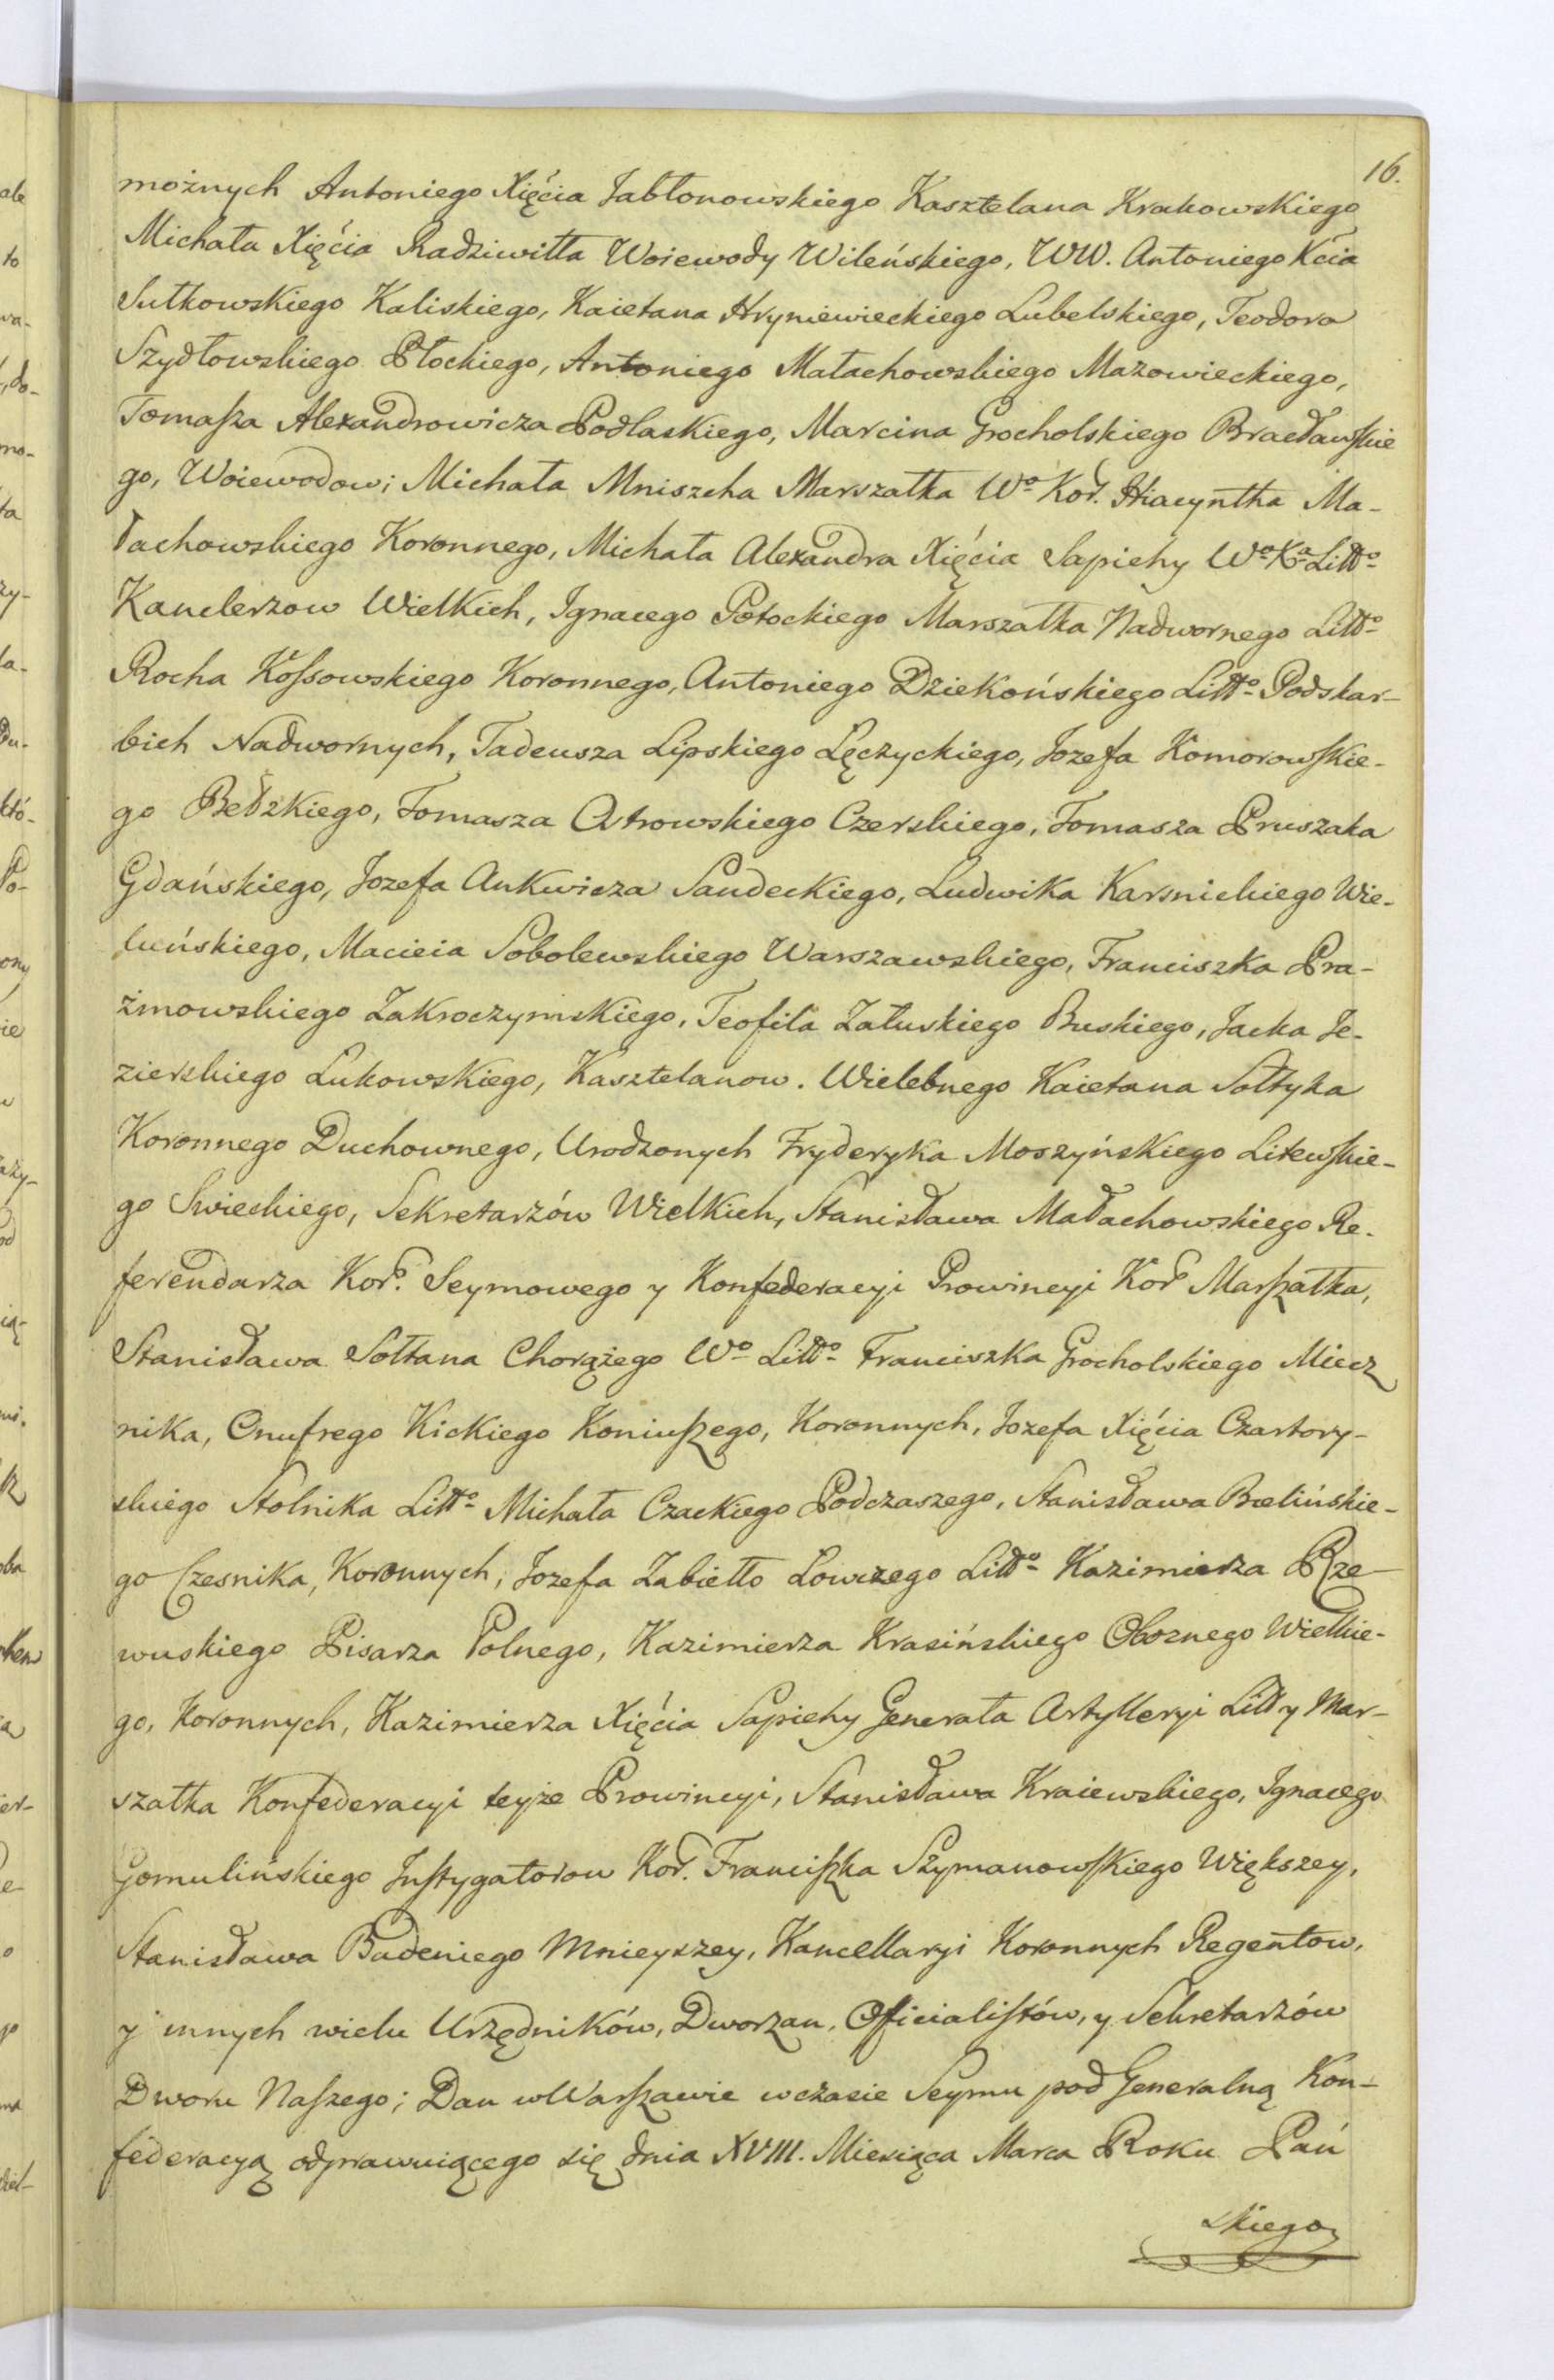 16.
możnych Antoniego Xięćia Jabłonowskiego Kasztelana Krakowskiego
Michała Xięćia Radziwiłła Woiewody Wileńskiego, WW. Antoniego Xcia
Sułkowskiego Kaliskiego, Kaietana Hryniewieckiego Lubelskiego, Teodora
Szydłowskiego Płockiego, Antoniego Małachowskiego Mazowieckiego,
Tomaſza Alexandrowicza Podlaskiego, Marcina Grocholskiego Bracławſkie
go, Woiewodow; Michała Mniszcha Marszałka Wo Kor. Hiacyntha Ma-
łachowskiego Koronnego, Michała Alexandra Xięćia Sapiehy Wo Xa Litto
Kanclerzow Wielkich, Ignacego Potockiego Marszałka Nadwornego Litto
Rocha Koſsowskiego Koronnego, Antoniego Dziekońskiego Litto Podskar-
bich Nadwornych, Tadeusza Lipskiego Łęczyckiego, Jozefa Komorowſkie-
go Bełzkiego, Tomasza Ostrowskiego Czerskiego, Tomasza Pruszaka
Gdańskiego, Jozefa Ankwicza Sandeckiego, Ludwika Karsnickiego Wie-
luńskiego, Macieia Sobolewskiego Warszawskiego, Franciszka Pra-
żmowskiego Zakroczymskiego, Teofila Załuskiego Buskiego, Jacka Je-
zierskiego Łukowskiego, Kasztelanow. Wielebnego Kaietana Sołtyka
Koronnego Duchownego, Urodzonych Fryderyka Moszyńskiego Litewſkie-
go Swieckiego, Sekretarzów Wielkich, Stanisława Małachowskiego Re-
ferendarza Kor. Seymowego y Konfederacyi Prowincyi Kor Marſzałka,
Stanisława Sołtana Chorążego Wo Litto Franciszka Grocholskiego Miecz
nika, Onufrego Kickiego Koniuſzego, Koronnych, Jozefa Xięćia Czartory-
skiego Stolnika Litto Michała Czackiego Podczaszego, Stanisława Bielińskie-
go Czesnika, Koronnych, Jozefa Zabiełło Łowczego Litto Kazimierza Rze-
wuskiego Pisarza Polnego, Kazimierza Krasińskiego Oboznego Wielkie-
go, Koronnych, Kazimierza Xięćia Sapiehy Generała Artylleryi Litt y Mar-
szałka Konfederacyi teyże Prowincyi, Stanisława Kraiewskiego, Ignacego
Gomulińskiego Inſtygatorow Kor. Franciſzka Szymanowſkiego Większey,
Stanisława Badeniego Mnieyszey, Kancellaryi Koronnych Regentow,
y innych wielu Urzędników, Dworzan, Officialiſtów, y Sekretarzów
Dworu Naſzego; Dan w Warſzawie w czasie Seymu pod Generalną Kon-
federacyą odprawuiącego się dnia XVIII. Miesiąca Marca Roku Pań
skiego